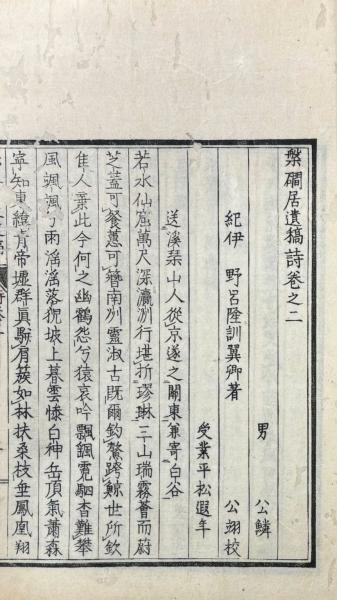 槃礀居遺稿詩卷之二
男 公鱗
紀伊 野呂隆訓翼卿著 公翊校
受業平松假年
送溪琴山人從京遂之關東兼寄白谷
若水仙窟萬尺深瀛洲行堪折璆琳三山瑞霧薈而蔚
芝蓋可餐蕙可簪南州靈淑古既爾釣鰲跨鯨世所欽
佳人棄此今何之幽鶴怨兮猿哀吟飄颻霓駟杳難攀
風颯颯兮雨滛滛落猊坡上暮雲悽白神岳頂氣蕭森
寧知東線青帝墟群眞駢肩簇如林扶桑枝垂鳳凰翔